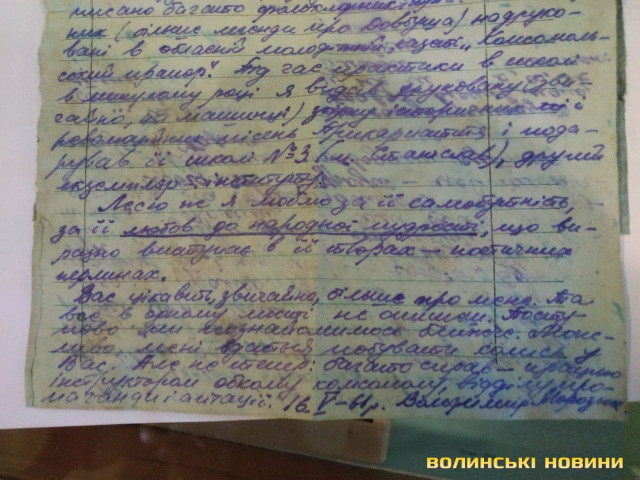 писано багато фольклорних
них (більше легенди про Довбуша) надруко-
вані в обласній молодіжній газеті „Комсомоль-
ський прапор". Під час практики в школі
в минулому році я видав друковану (зви-
чайно, на машинці) історичних і
революційних пісень Прикарпаття і пода-
рував її школі №3 (м. Станіслав), другий
екземпляр інституту.
Лесю ж я люблю за її самобутність,
за її любов до народної мудрості, що ви-
разно виступає в її творах — поетичних
перлинах.
Вас цікавить, звичайно, більше про мене. Та
все в одному листі не опишеш. Посту-
пово ми познайомимося ближче. Мож-
ливо, мені вдасться побувати колись у
Вас. Але не тепер: багато справ — працюю
інструктором обкому комсомолу, відділу про-
паганди і агітації. 16 V-61р. Володимир Морозюк
ВОЛИНСЬКІ НОВИНИ